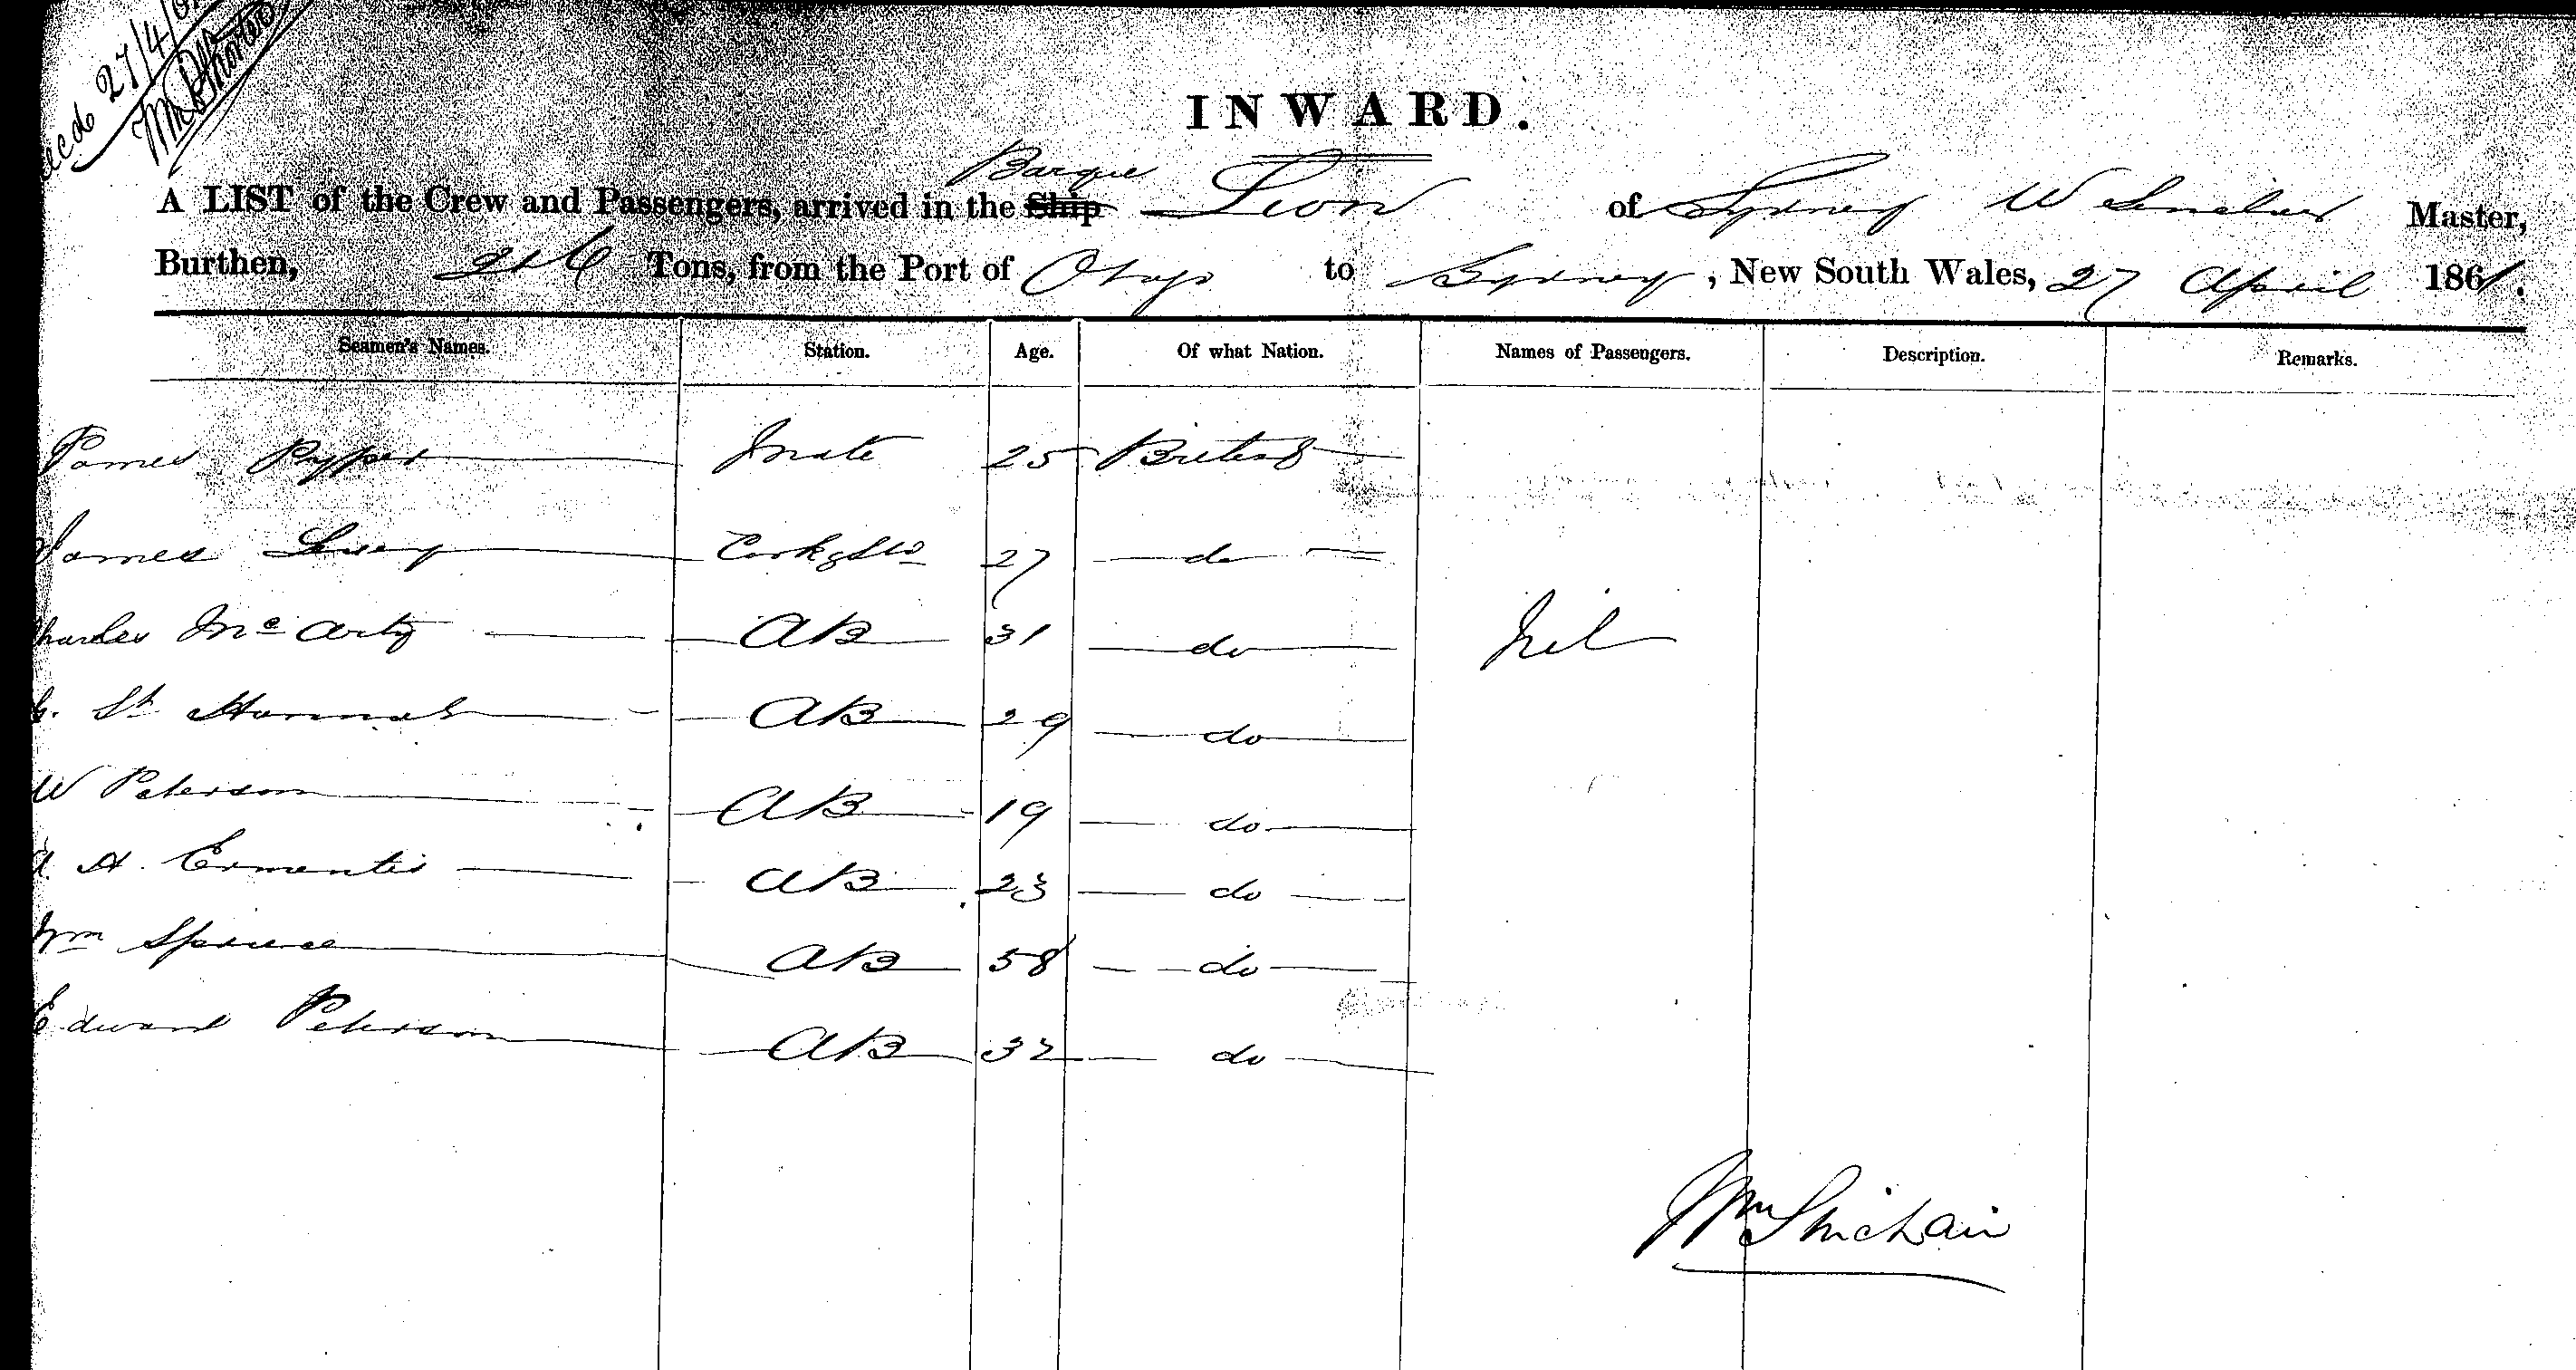 27/4/61
INWARD.
Barque
A LIST of the Crew and Passengers, arrived in the Ship Lion of Sydney W Sinclair Master,
Burthen, Tons, from the Port of Otago to Sydney, New South Wales, 27 April 1861.
Seamen's Names. Station. Age. Of what Nation. Names of Passengers. Description. Remarks.
James Mate 25 British
James Cook & Std 27 do
Charles Mc Arty AB 31 do Nil
St Hannah AB 29 do
W Peterson AB 19 do
A. AB 23 do
Wm Spruce AB 58 do
Edward Peterson AB 32 do
Wm Sinclair